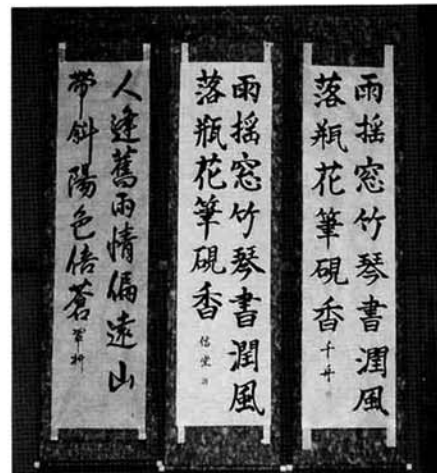 雨揺窓竹琴書潤風
落瓶花筆硯香 千舟
雨揺窓竹琴書潤風
落瓶花筆硯香 信堂
人逢舊雨情偏遠山
帶斜陽色倍蒼